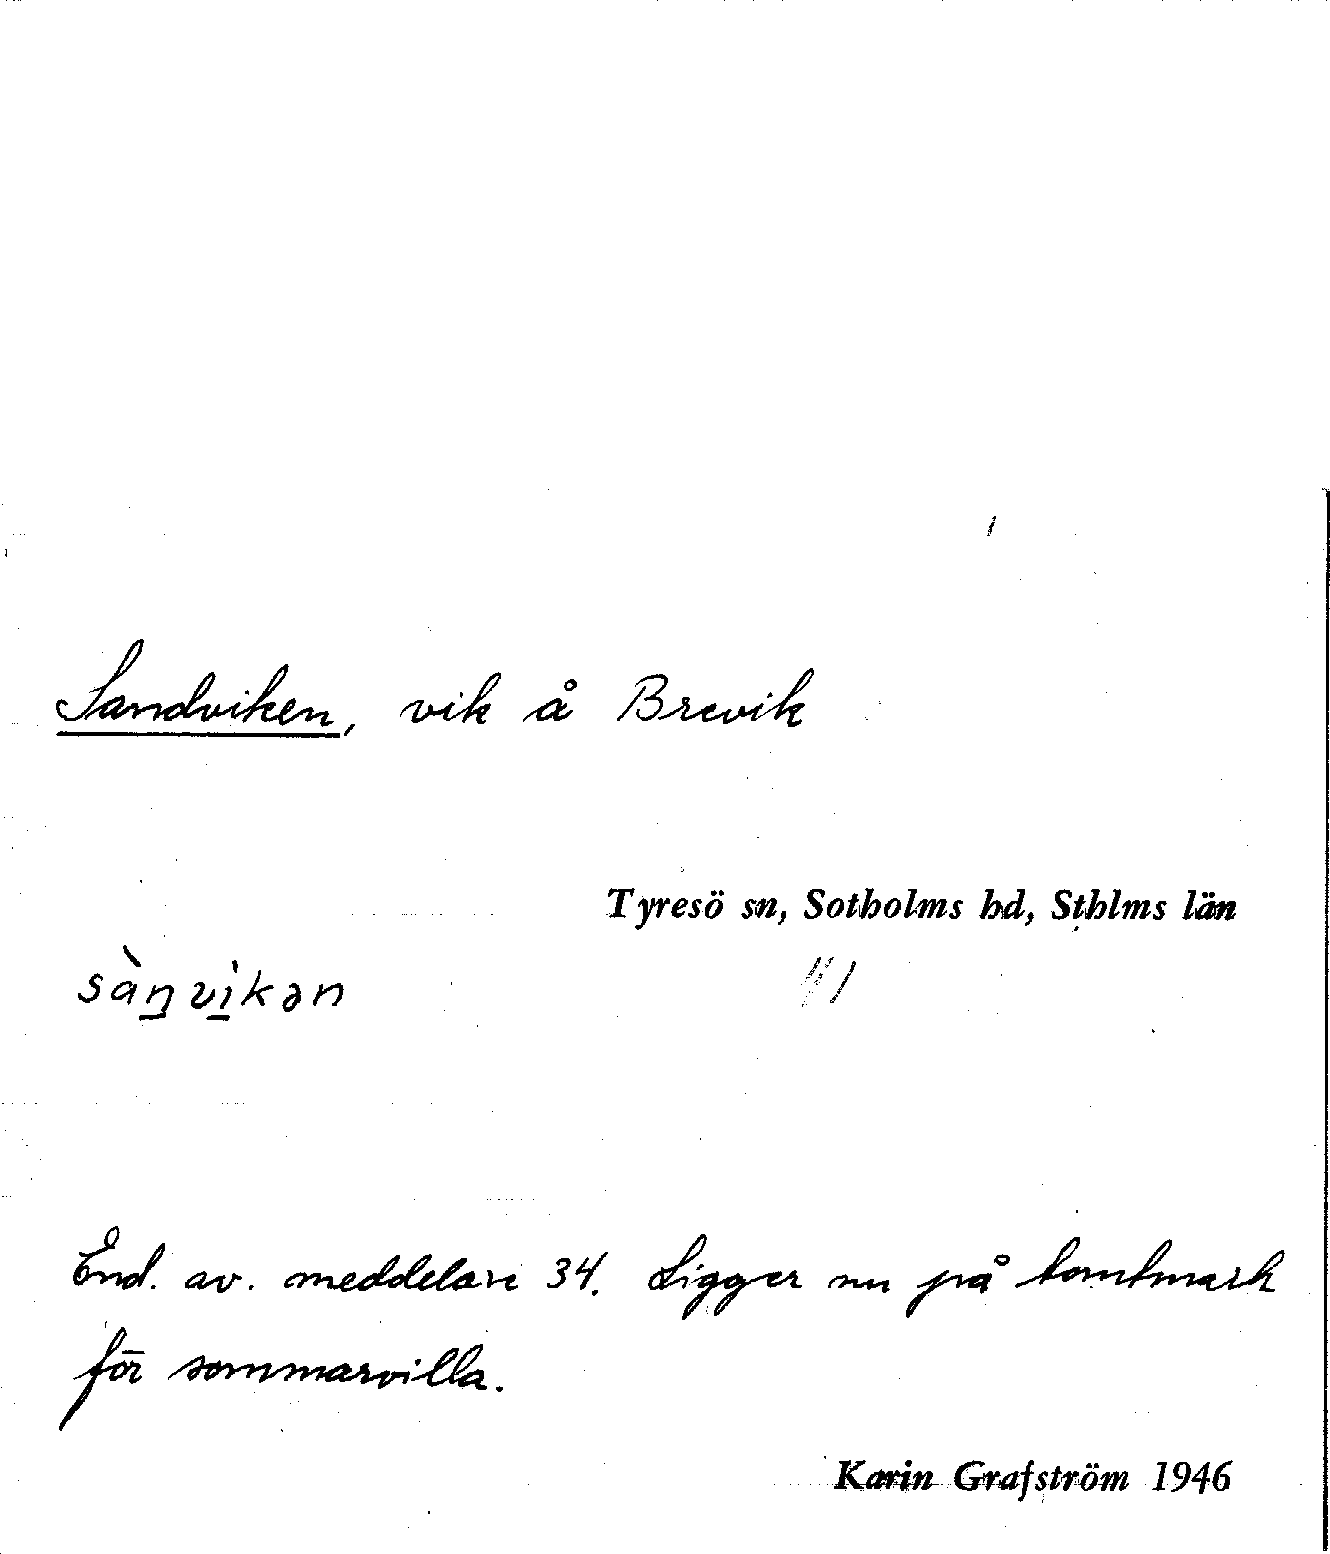 Sandviken, vik å Brevik
Tyresö sn, Sotholms hd, Sthlms län
sàn̠vi̠̇kən
End. av. meddelare 34. Ligger nu på tomtmark
för sommarvilla.
Karin Grafström 1946